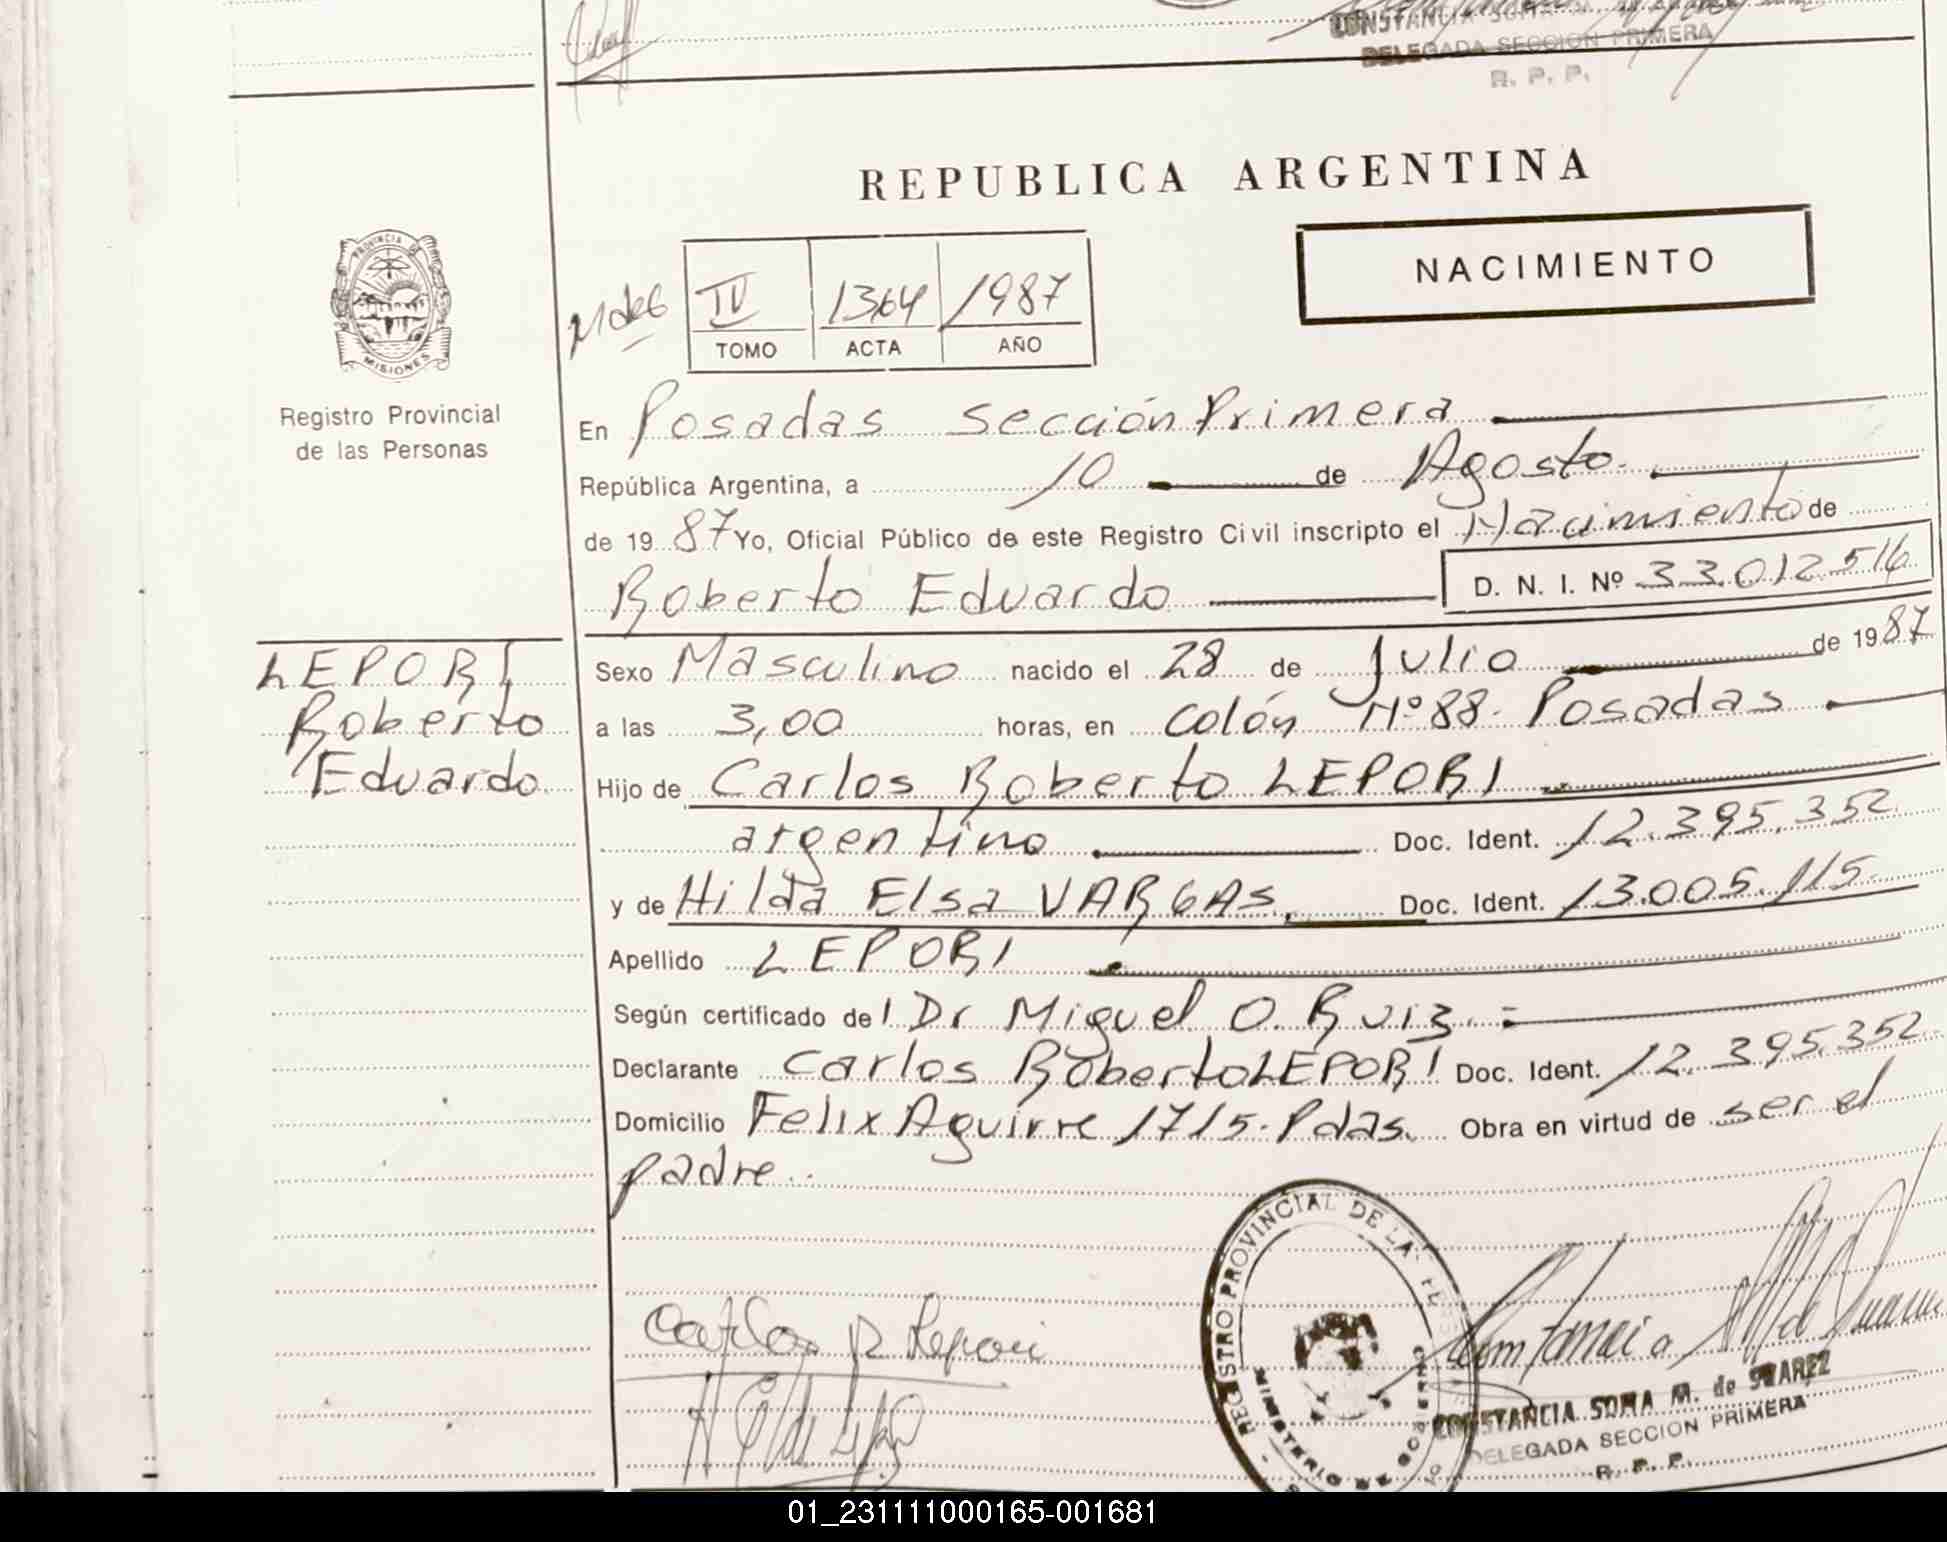 CONSTANCIA SOMA M. de SUAREZ
DELEGADA SECCION PRIMERA
R. P. P.
REPUBLICA ARGENTINA
NACIMIENTO
PROVINCIA DE
MISIONES
IV 1364 1987
TOMO ACTA AÑO
Registro Provincial
de las Personas
En Posadas Sección Primera
República Argentina, a 10 de Agosto.
de 19 87 Yo, Oficial Público de este Registro Civil inscripto el Nacimiento de
Roberto Eduardo D. N. I. Nº 33.012.516
LEPORI
Roberto
Eduardo
Sexo Masculino nacido el 28 de Julio de 19 87
a las 3,00 horas, en Colón Nº 88. Posadas
Hijo de Carlos Roberto LEPORI
argentino Doc. Ident. 12.395.352
y de Hilda Elsa VARGAS. Doc. Ident. 13.005.115
Apellido LEPORI
Según certificado del Dr Miguel O. Ruiz.
Declarante Carlos Roberto LEPORI Doc. Ident. 12.395.352
Domicilio Felix Aguirre 1715. Pdas. Obra en virtud de ser el
padre.
REGISTRO PROVINCIAL DE LA
MINISTERIO DE GOBIERNO
Carlos R Lepori
CONSTANCIA SOMA M. de SUAREZ
DELEGADA SECCION PRIMERA
R. P. P.
01_231111000165-001681